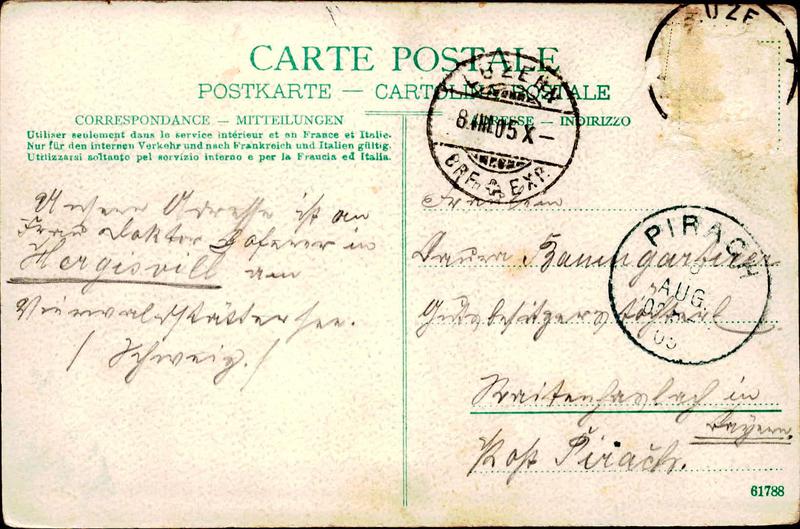 CARTE POSTALE
POSTKARTE — CARTOLINA POSTALE
CORRESPONDANCE – MITTEILUNGEN
Utiliser seulement dans le service intérieur et en France et Italie.
Nur für den internen Verkehr und nach Frankreich und Italien gültig.
Utilizzarsi soltanto pel servizio interno e per la Francia ed Italia.
ADRESSE – INDIRIZZO
LUZERN
8.VIII.05 X–
BRF. EXP.
PIRACH
AUG
05
Unsere Adresse ist an
Frau Doktor Hoferer in
Hergiswill am
Vierwaldstättersee.
/ Schweiz. /
Fräulein
Laura Baumgartner
Gutsbesitzerstöchterl
Raitenhaslach in
Bayern.
Post Pirach.
61788